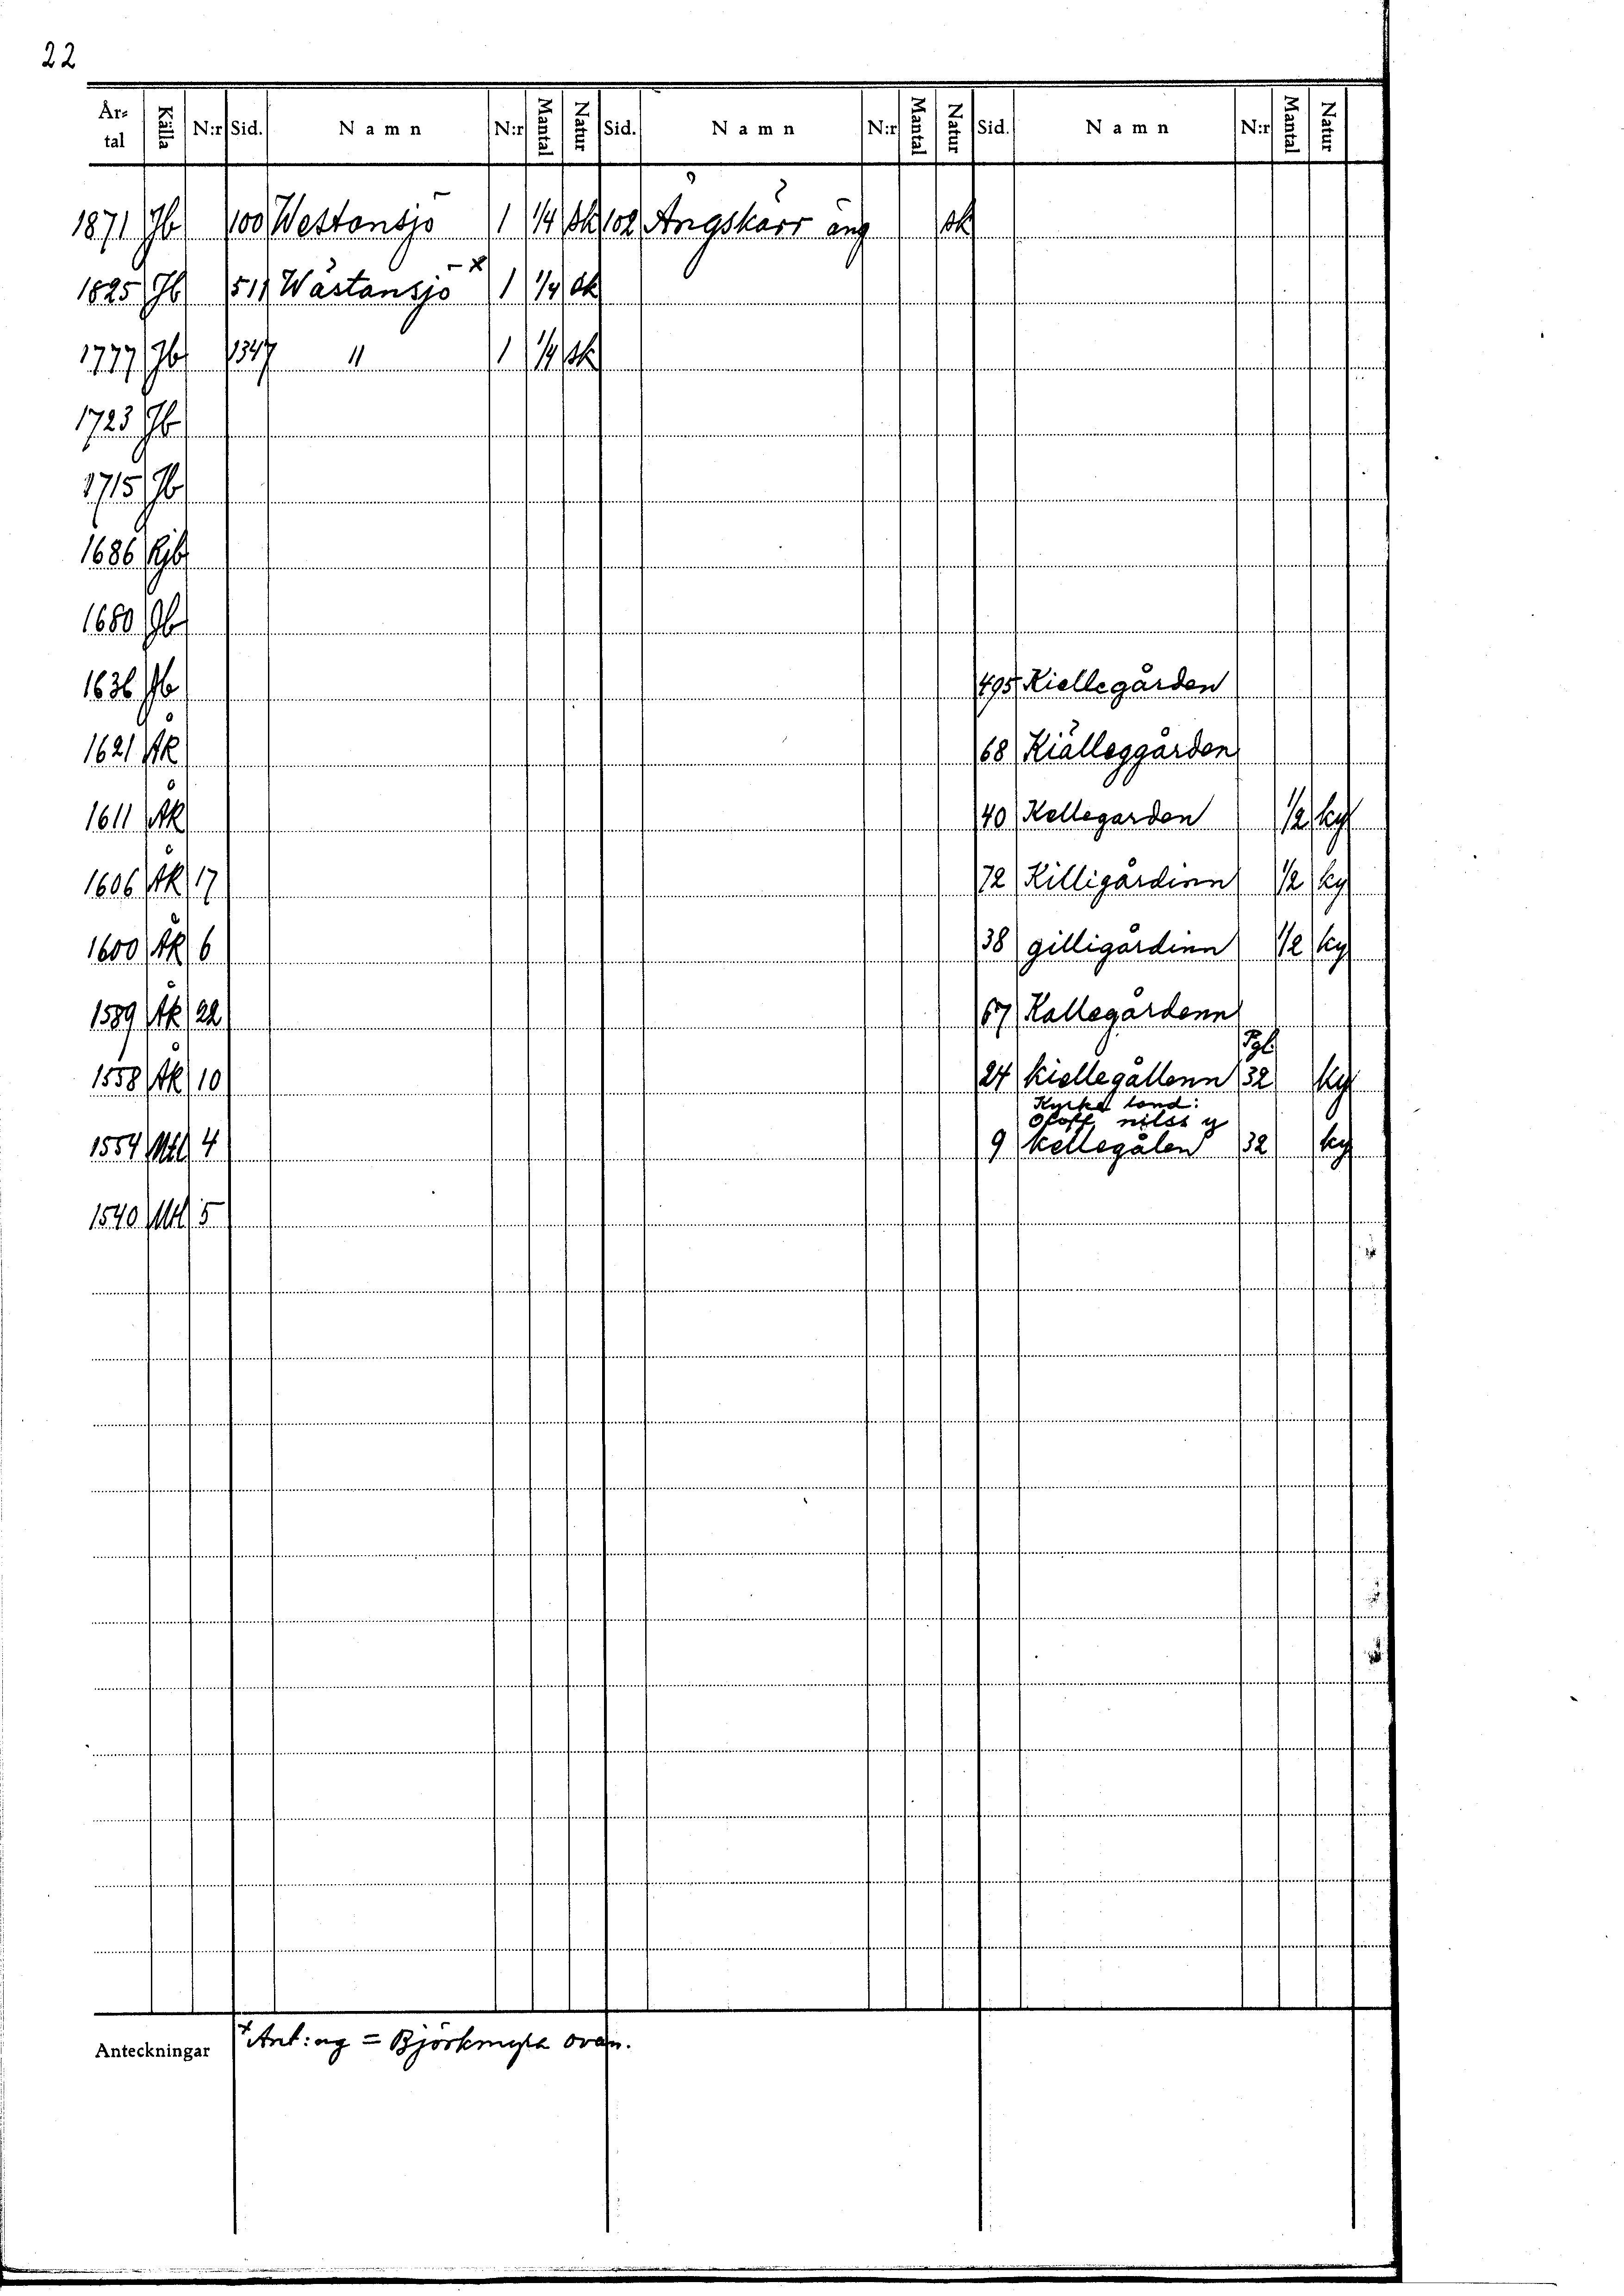 22
År-tal Källa N:r Sid. Namn N:r Mantal Natur Sid. Namn N:r Mantal Natur Sid. Namn N:r Mantal Natur
1871 Jb 100 Westansjö 1 1/4 sk 102 Ängskärr äng sk
1825 Jb 511 Wästansjö x 1 1/4 sk
1777 Jb 1347 " 1 1/4 sk
1723 Jb
1715 Jb
1686 Rjb
1680 Jb
1636 Jb 495 Kiellegården
1621 ÄR 68 Kiälleggården
1611 ÄR 40 Kellegarden 1/2 ky
1606 ÄR 17 72 Killigårdinn 1/2 ky
1600 ÄR 6 38 gilligårdinn 1/2 ky
1589 ÄR 22 67 Kallegårdenn
Pgl
1558 ÄR 10 24 kiellegållenn 32 ky
Kyrka land:
Ofoff nilss y
1554 Mtl 4 9 kellegålen 32 ky
1540 Mtl 5
Anteckningar x Ant: ag = Björkmyra ovan.